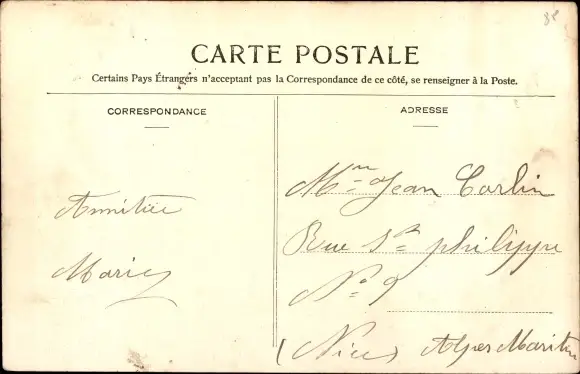 8e
CARTE POSTALE
Certains Pays Étrangers n'acceptant pas la Correspondance de ce côté, se renseigner à la Poste.
CORRESPONDANCE
Amitiée
Marie
ADRESSE
Mme Jean Carlin
Rue St philippe
No 9
(Nice) Alpes Maritim